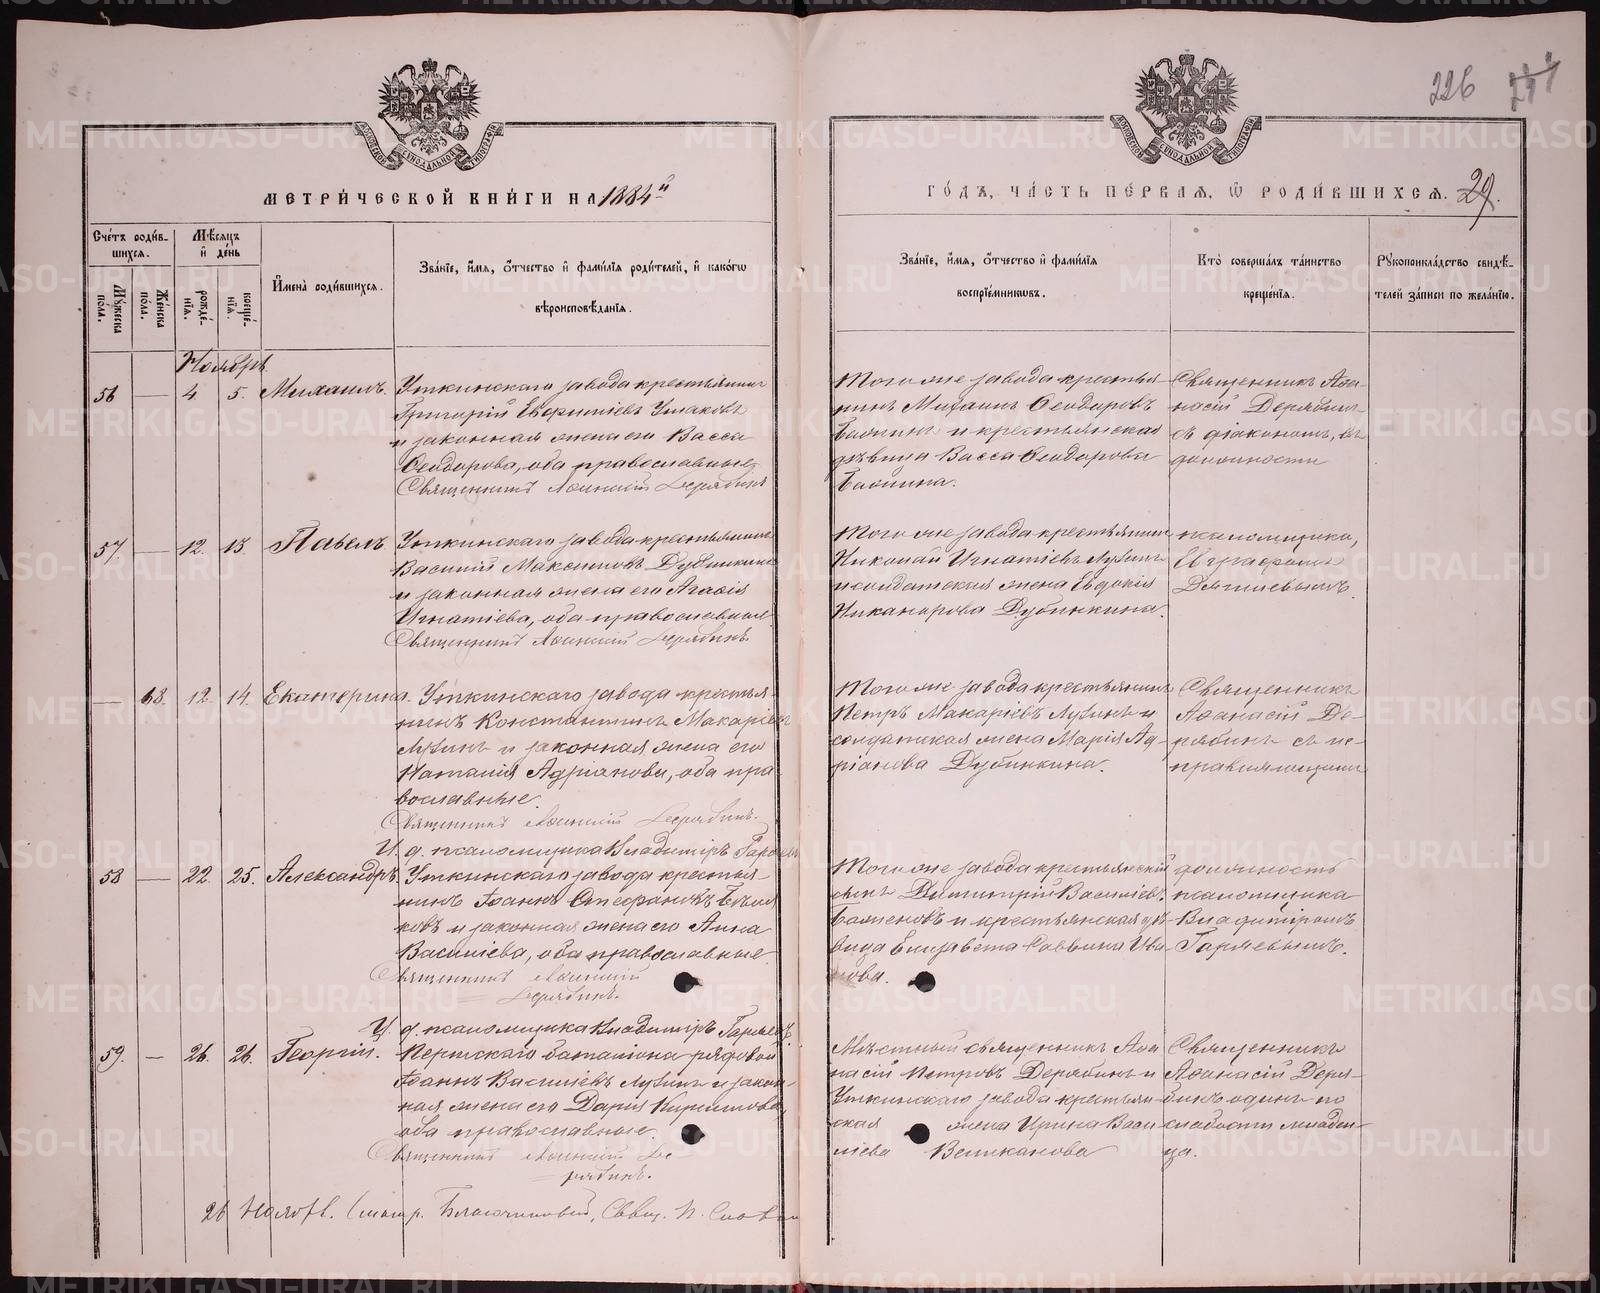 226
МЕТРИ́ЧЕСКОЙ КНИ́ГИ НА 1884й
ГО́ДЪ, ЧА́СТЬ ПЕ́РВАЯ, Ѿ РОДИ́ВШИХСЯ. 29.
Сче́тъ роди́в-
шихся.
Му́жеска по́ла.
Же́нска по́ла.
Мѣ́сяцъ и҆ де́нь
рожде́-
нїѧ.
креще́-
нїѧ.
И҆мена̀ роди́вшихся.
Зва́нїе, и҆́мя, ѻ҆́тчество и҆ фами́лїя роди́телей, и҆ како́гѡ
вѣроисповѣ́данїя.
Зва́нїе, и҆́мя, ѻ҆́тчество и҆ фами́лїя
воспрїе́мникѡвъ.
Кто̀ соверша́лъ та́инство
креще́нїя.
Рꙋкоприкла́дство свидѣ́-
телей за́писи по жела́нїю.
Ноябрь
56 — 4 5. Михаилъ.
Уткинскаго завода крестьянинъ
Григорій Евфиміевъ Ушаковъ
и законная жена его Васса
Ѳеодорова, оба православные
Священникъ Аѳанасій Дерябинъ
Того же завода крестья-
нинъ Михаилъ Ѳеодоровъ
и крестьянская
дѣвица Васса Ѳеодорова
Священникъ Аѳа-
насій Дерябинъ
съ діакономъ, въ
должности
57. — 12. 13. Павелъ
Уткинскаго завода крестьянинъ
Василій Максимовъ Дубинкинъ
и законная жена его Агаѳія
Игнатіева, оба православные.
Священникъ Аѳанасій Дерябинъ
Того же завода крестьянинъ
Николай Игнатіевъ Лузинъ
и солдатская жена Евдокія
Никанорова Дубинкина.
псаломщика,
Евграфомъ
— 68. 12. 14. Екатерина.
Уткинскаго завода крестья-
нинъ Константинъ Макаріевъ
Лузинъ и законная жена его
Наталія Адріанова, оба пра-
вославные.
Священникъ Аѳанасій Дерябинъ.
И. д. псаломщика Владиміръ Гаряевъ
Того же завода крестьянинъ
Петръ Макаріевъ Лузинъ и
солдатская жена Марія Ад-
ріанова Дубинкина.
Священникъ
Аѳанасій Де-
рябинъ съ ис-
правляющимъ
58 — 22. 25. Александръ.
Уткинскаго завода крестья-
нинъ Іоаннъ Стефановъ Бѣля-
ковъ и законная жена его Анна
Василіева, оба православные
Священникъ Аѳанасій
Дерябинъ.
И. д. псаломщика Владиміръ Гаряевъ.
Того же завода крестьянскій
сынъ Димитрій Василіевъ
Баженовъ и крестьянская дѣ-
вица Елизавета Саввина Ива-
нова.
должность
псаломщика
Владиміромъ
Гаряевымъ.
59. — 26. 26. Георгій.
Пермскаго баталіона рядовой
Іоаннъ Василіевъ Лузинъ и закон-
ная жена его Дарія Кириллова
оба православные.
Священникъ Аѳанасій Де-
рябинъ.
Мѣстный священникъ Аѳа-
насій Петровъ Дерябинъ и
Уткинскаго завода крестьян-
ская жена Ирина Васи-
ліева Великанова
Священникъ
Аѳанасій Деря-
бинъ одинъ по
слабости младен-
ца.
26 Ноября. Смотр. Благочинный, Свящ. П.